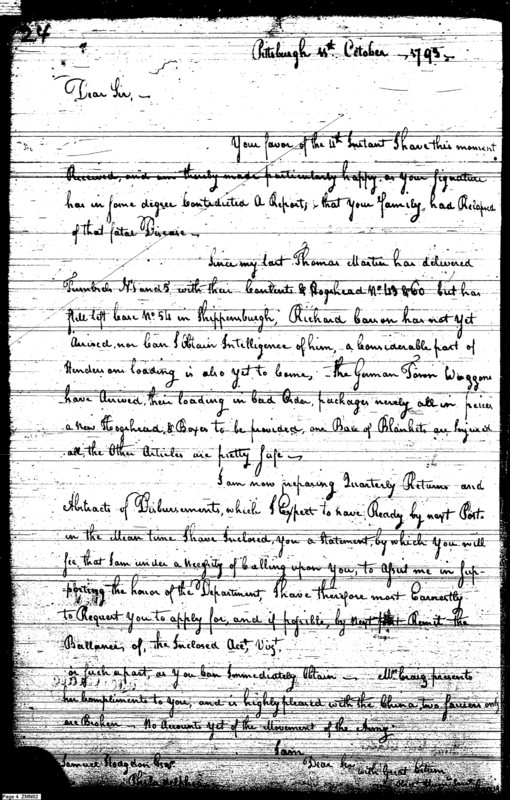 24
Pittsburgh 11th October 1793
Dear Sir,
Your favor of the 4th Instant I have this moment
Received, and am thereby made particularly happy, as your signature
has in some degree Contradicted A Report, that your family had
of that fatal Disease
Since my last Thomas Martin has delivered
Tumbrils No 1 and 5 with their Contents & Hogshead No 43 & 60 but has
left Case No 54 in Shippensburgh, Richard Carson has not yet
Arrived, nor Can I Obtain Intelligence of him, a Considerable part of
Hendersons loading is also yet to Come, the German Town Waggons
have Arrived, their loading in bad Order, packages nearly all in pieces
a new Hogshead, & Boxes to be provided, one Bale of Blankets are Injured
all the Other Articles are pretty Safe
I am now preparing Quarterly Returns and
Abstracts of Disbursements, which I Expect to have Ready by next Post
in the Mean time I have Inclosed, you a Statement, by which You will
see, that I am under a Necessity of Calling upon You, to Assist me in Sup-
-porting the honor of the Department, I have therefore most Earnestly
to Request You to apply for, and if possible, by next Post Remit the
Ballance of, the Inclosed Acct, Vizt
or such a part, as You Can Immediately Obtain Mrs Craig presents
her Compliments to You, and is highly pleased with the China, two saucers only
are Broken No Accounts yet of the Movement of the Army
I am
Samuel Hodgdon Esqr Dear Sir with Great Esteem
Philadelphia
Page 4 ZMN02